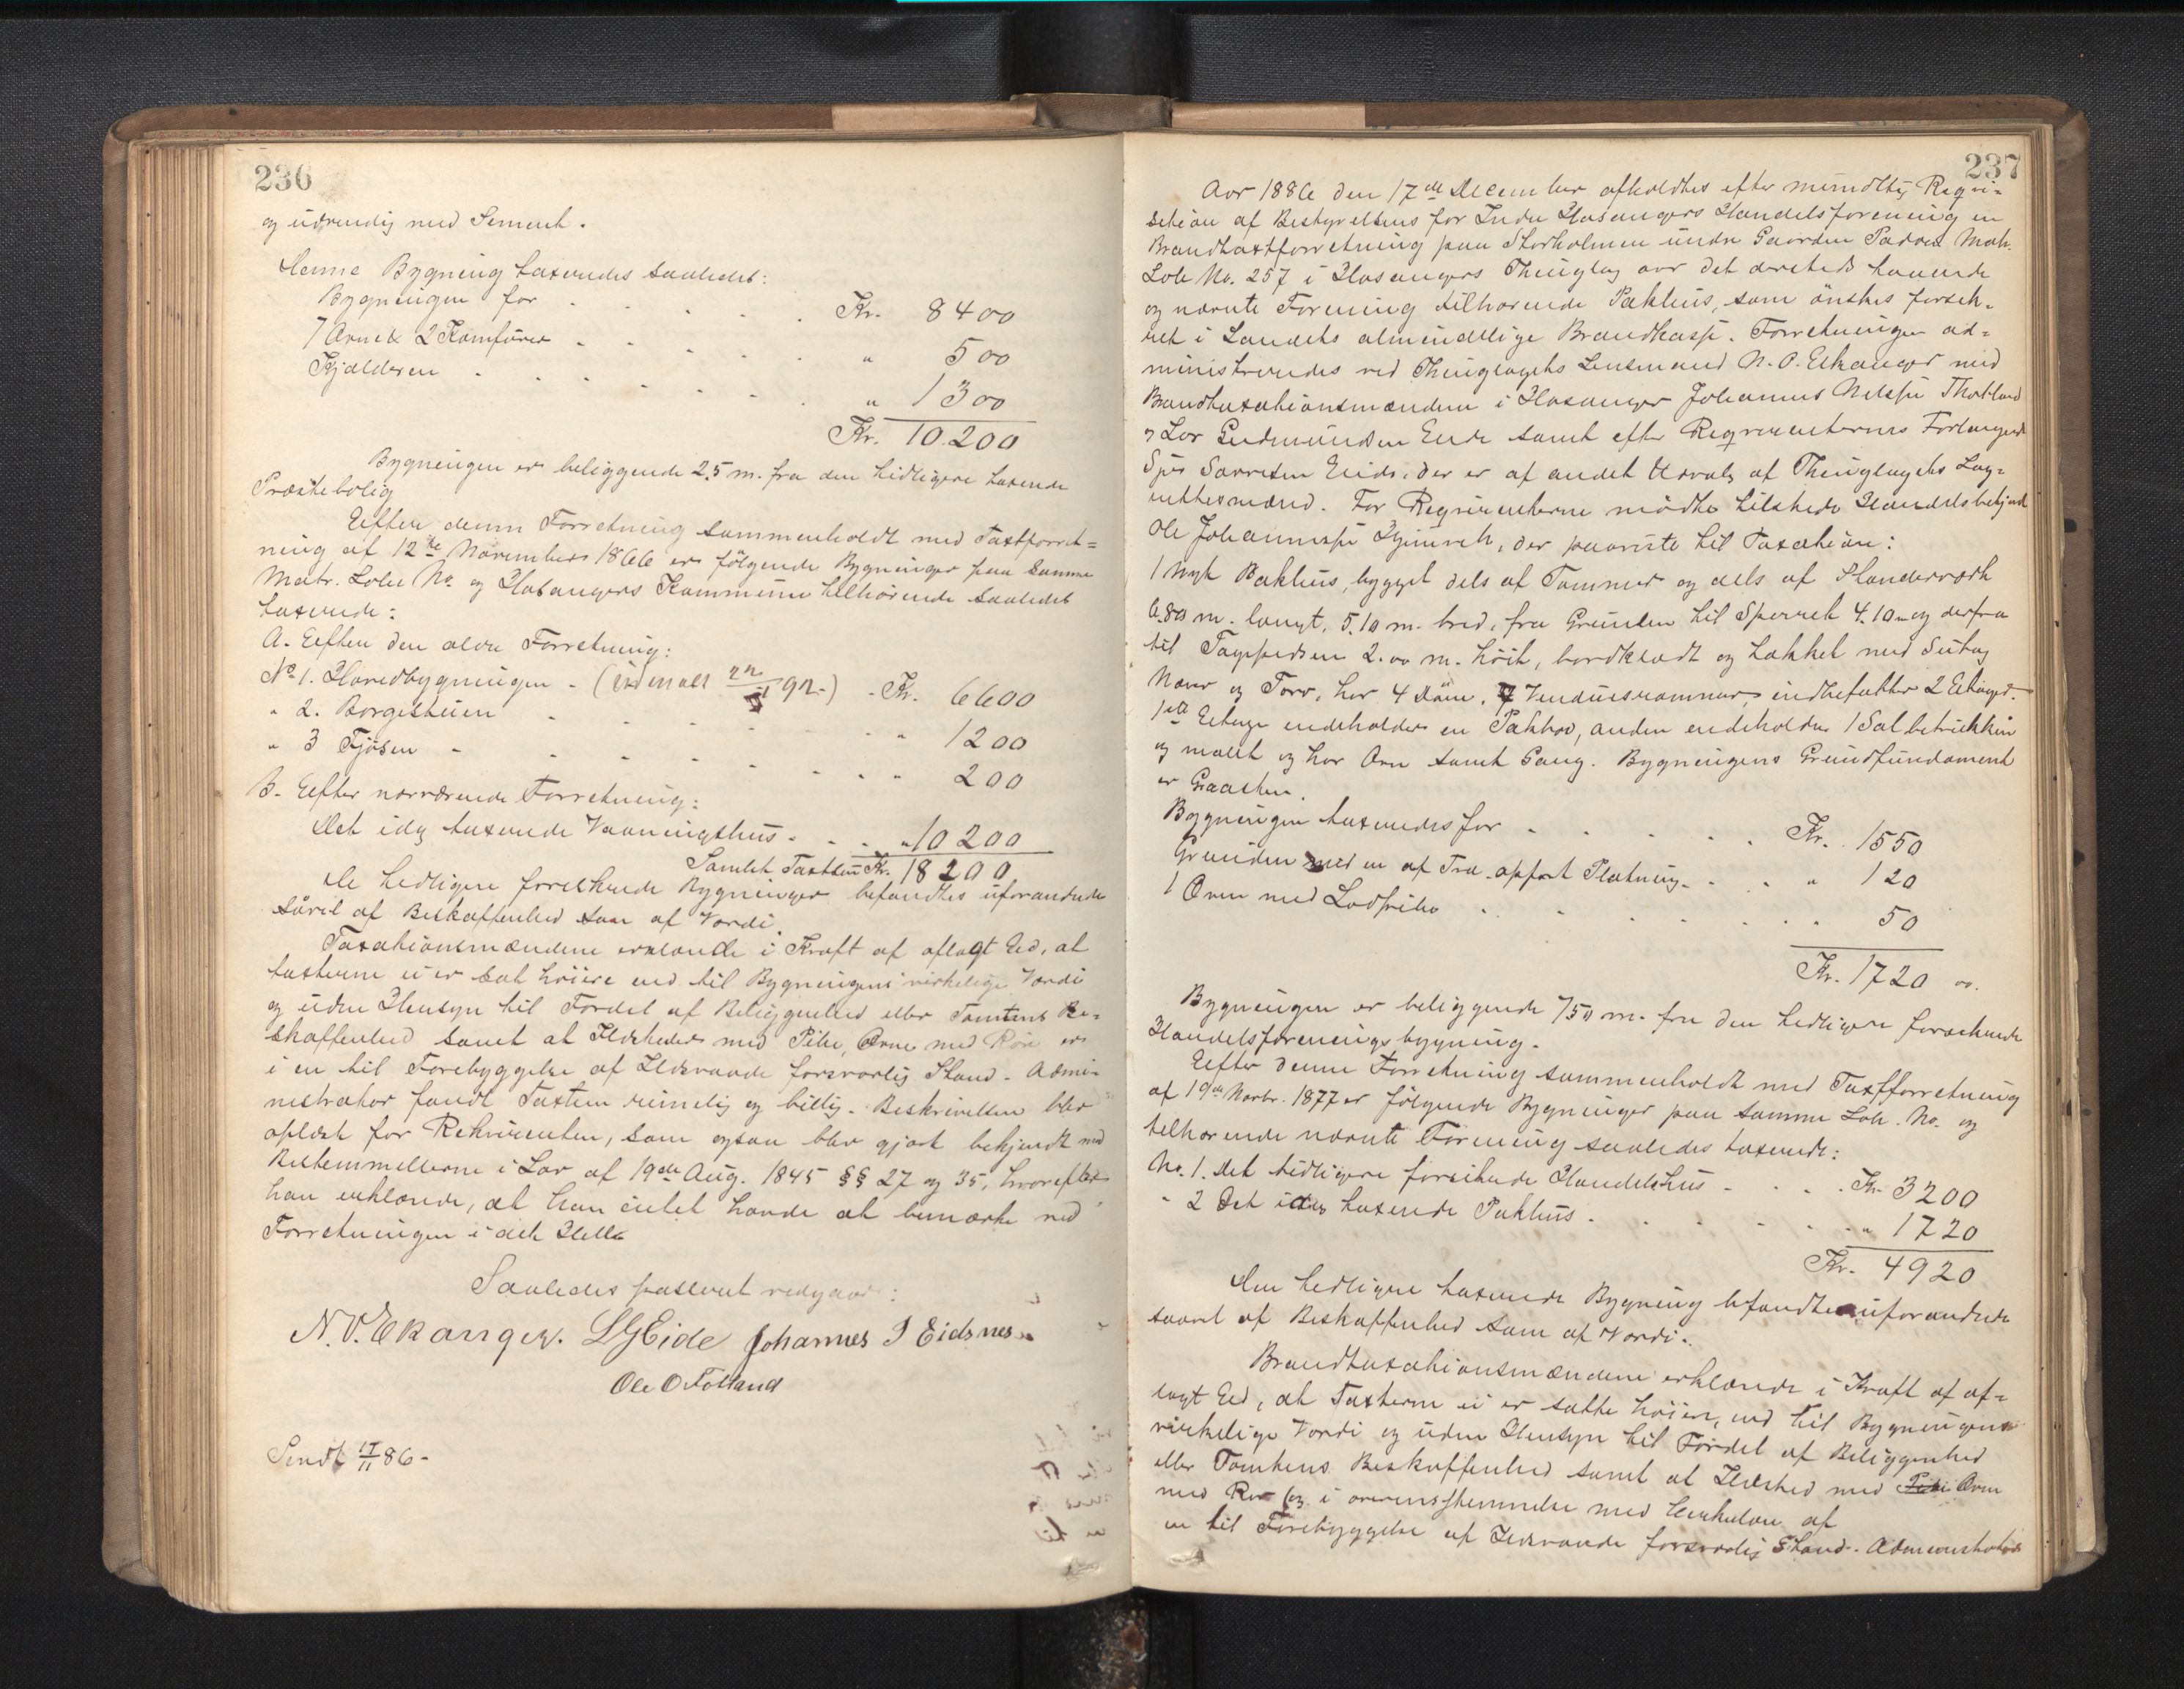 236
og udvendig med Sement.
Denne Bygning taxeredes saaledes:
Bygningen for . . . . Kr. 8400
7 Ovne & 2 Komfurer - - - - - " 500
Kjælderen - - - - - - " 1300
Kr. 10.200
Bygningen er beliggende 25 m. fra den tidligere taxerede
Præstebolig
Efter denne Forretning sammenholdt med Taxtforret=
ning af 12te November 1866 er følgende Bygninger paa samme
Matr. Løbe No. og Hosangers Kommune tilhørende saaledes
taxerede:
A. Efter den ældre Forretning:
No 1. Hovedbygningen - - Kr. 6600
" 2. Borgestuen - - - - - " 1200
" 3 Fjøsen - - - - - - " 200
B. Efter nærværende Forretning:
Det idag taxerede Vaaningshus - - - " 10200
Samlet Taxtsum Kr. 18200
De tidligere forsikrede Bygninger befandtes uforandrede
såvel af Beskaffenhed som af Værdi.
Taxationsmændene erklærede i Kraft af aflagt Eed, at
taxterne ei er sat høiere end til Bygningens virkelige Værdi
og uden Hensyn til Fordel af Beliggenhed eller Tomtens Be=
skaffenhed samt at Ildsteder med Piber, Ovne med Rør er
i en til Forebyggelse af Ildsvaade forsvarlig Stand - Admi-
nistrator fandt Taxten rimelig og billig. Beskrivelsen blev
oplæst for Rekvirenten, som ogsaa blev gjort bekjendt med
Bestemmelserne i Lov af 19de Aug. 1845 §§ 27 og 35, hvorefter
han erklærede, at han intet havde at bemærke ved
Forretningen i det Hele
Saaledes passeret vedgaaes:
N. O. Ekanger. L G Eide Johannes J Eidsnes.
Ole O Fotland
Sendt 17/11 86 -
237
Aar 1886 den 17de December afholdtes efter mundtlig Reqvi=
sition af Bestyrelsens for Indre Hosangers Handelsforening en
Brandtaxtforretning paa Storholmen under Gaarden Padøen Matr.
Løbe No. 257 i Hosangers Thinglag over det dersteds havende
og nævnte Forening tilhørende Pakhus, som ønskes forsik=
ret i Landets almindelige Brandkasse. Forretningen ad=
ministreredes ved Thinglagets Lensmand N. O. Eikanger med
Brandtaxationsmændene i Hosanger Johannes Nilssen
og Lars Gudmundsen Eide samt efter Reqvirenternes Forlangende
Eide, der er af andet Udvalg af Thinglagets Lag=
rettesmænd. For Reqvirenterne mødte tilstede Handelsbetjent
Ole Johannessen, der paaviste til Taxation:
1 Nyt Pakhus, bygget dels af Tømmer og dels af Standerværk
6.80 m. langt, 5.10 m. bred, fra Grunden til Sperret 4.10 m og derfra
til Tagspidsen 2.00 m. høit, bordklædt og takket med Sutag
Næver og Torv, har 4 Døre, 7 Vinduesrammer, indbefatter 2 Etager.
1ste Etage indeholder en Pakbod, anden indeholder 1 Sal betrukken
og malet og har Ovn samt Gang. Bygningens Grundfundament
er Graasten.
Bygningen taxeredes for - - - - Kr. 1550
Grunden med en af Træ opført Pladning - - - " 120
1 Ovn med - - - - - - " 50
Kr. 1720 oo.
Bygningen er beliggende 750 m. fra den tidligere forsikrede
Handelsforeningsbygning.
Efter denne Forretning sammenholdt med Taxtforretning
af 19de Novbr. 1877 er følgende Bygninger paa samme Løb. No. og
tilhørende nævnte Forening saaledes taxerede:
No. 1. Det tidligere forsikrede Handelshus - - - Kr. 3200
" 2 Det idag taxerede Pakhus - - - - - " 1720
Kr. 4920
Den tidligere taxerede Bygning befandtes uforandrede
saavel af Beskaffenhed som af Værdi.
Brandtaxationsmændene erklærede i Kraft af af=
lagt Eed, at Taxterne ei er satte høiere, end til Bygningens
virkelige Værdi og uden Hensyn til Fordel af Beliggenhed
eller Tomtens Beskaffenhed samt at Ildsted med Ovn
med Rør og i overensstemmelse med Cirkulære af
en til Forebyggelse af Ildsvaade forsvarlig Stand. Administrator